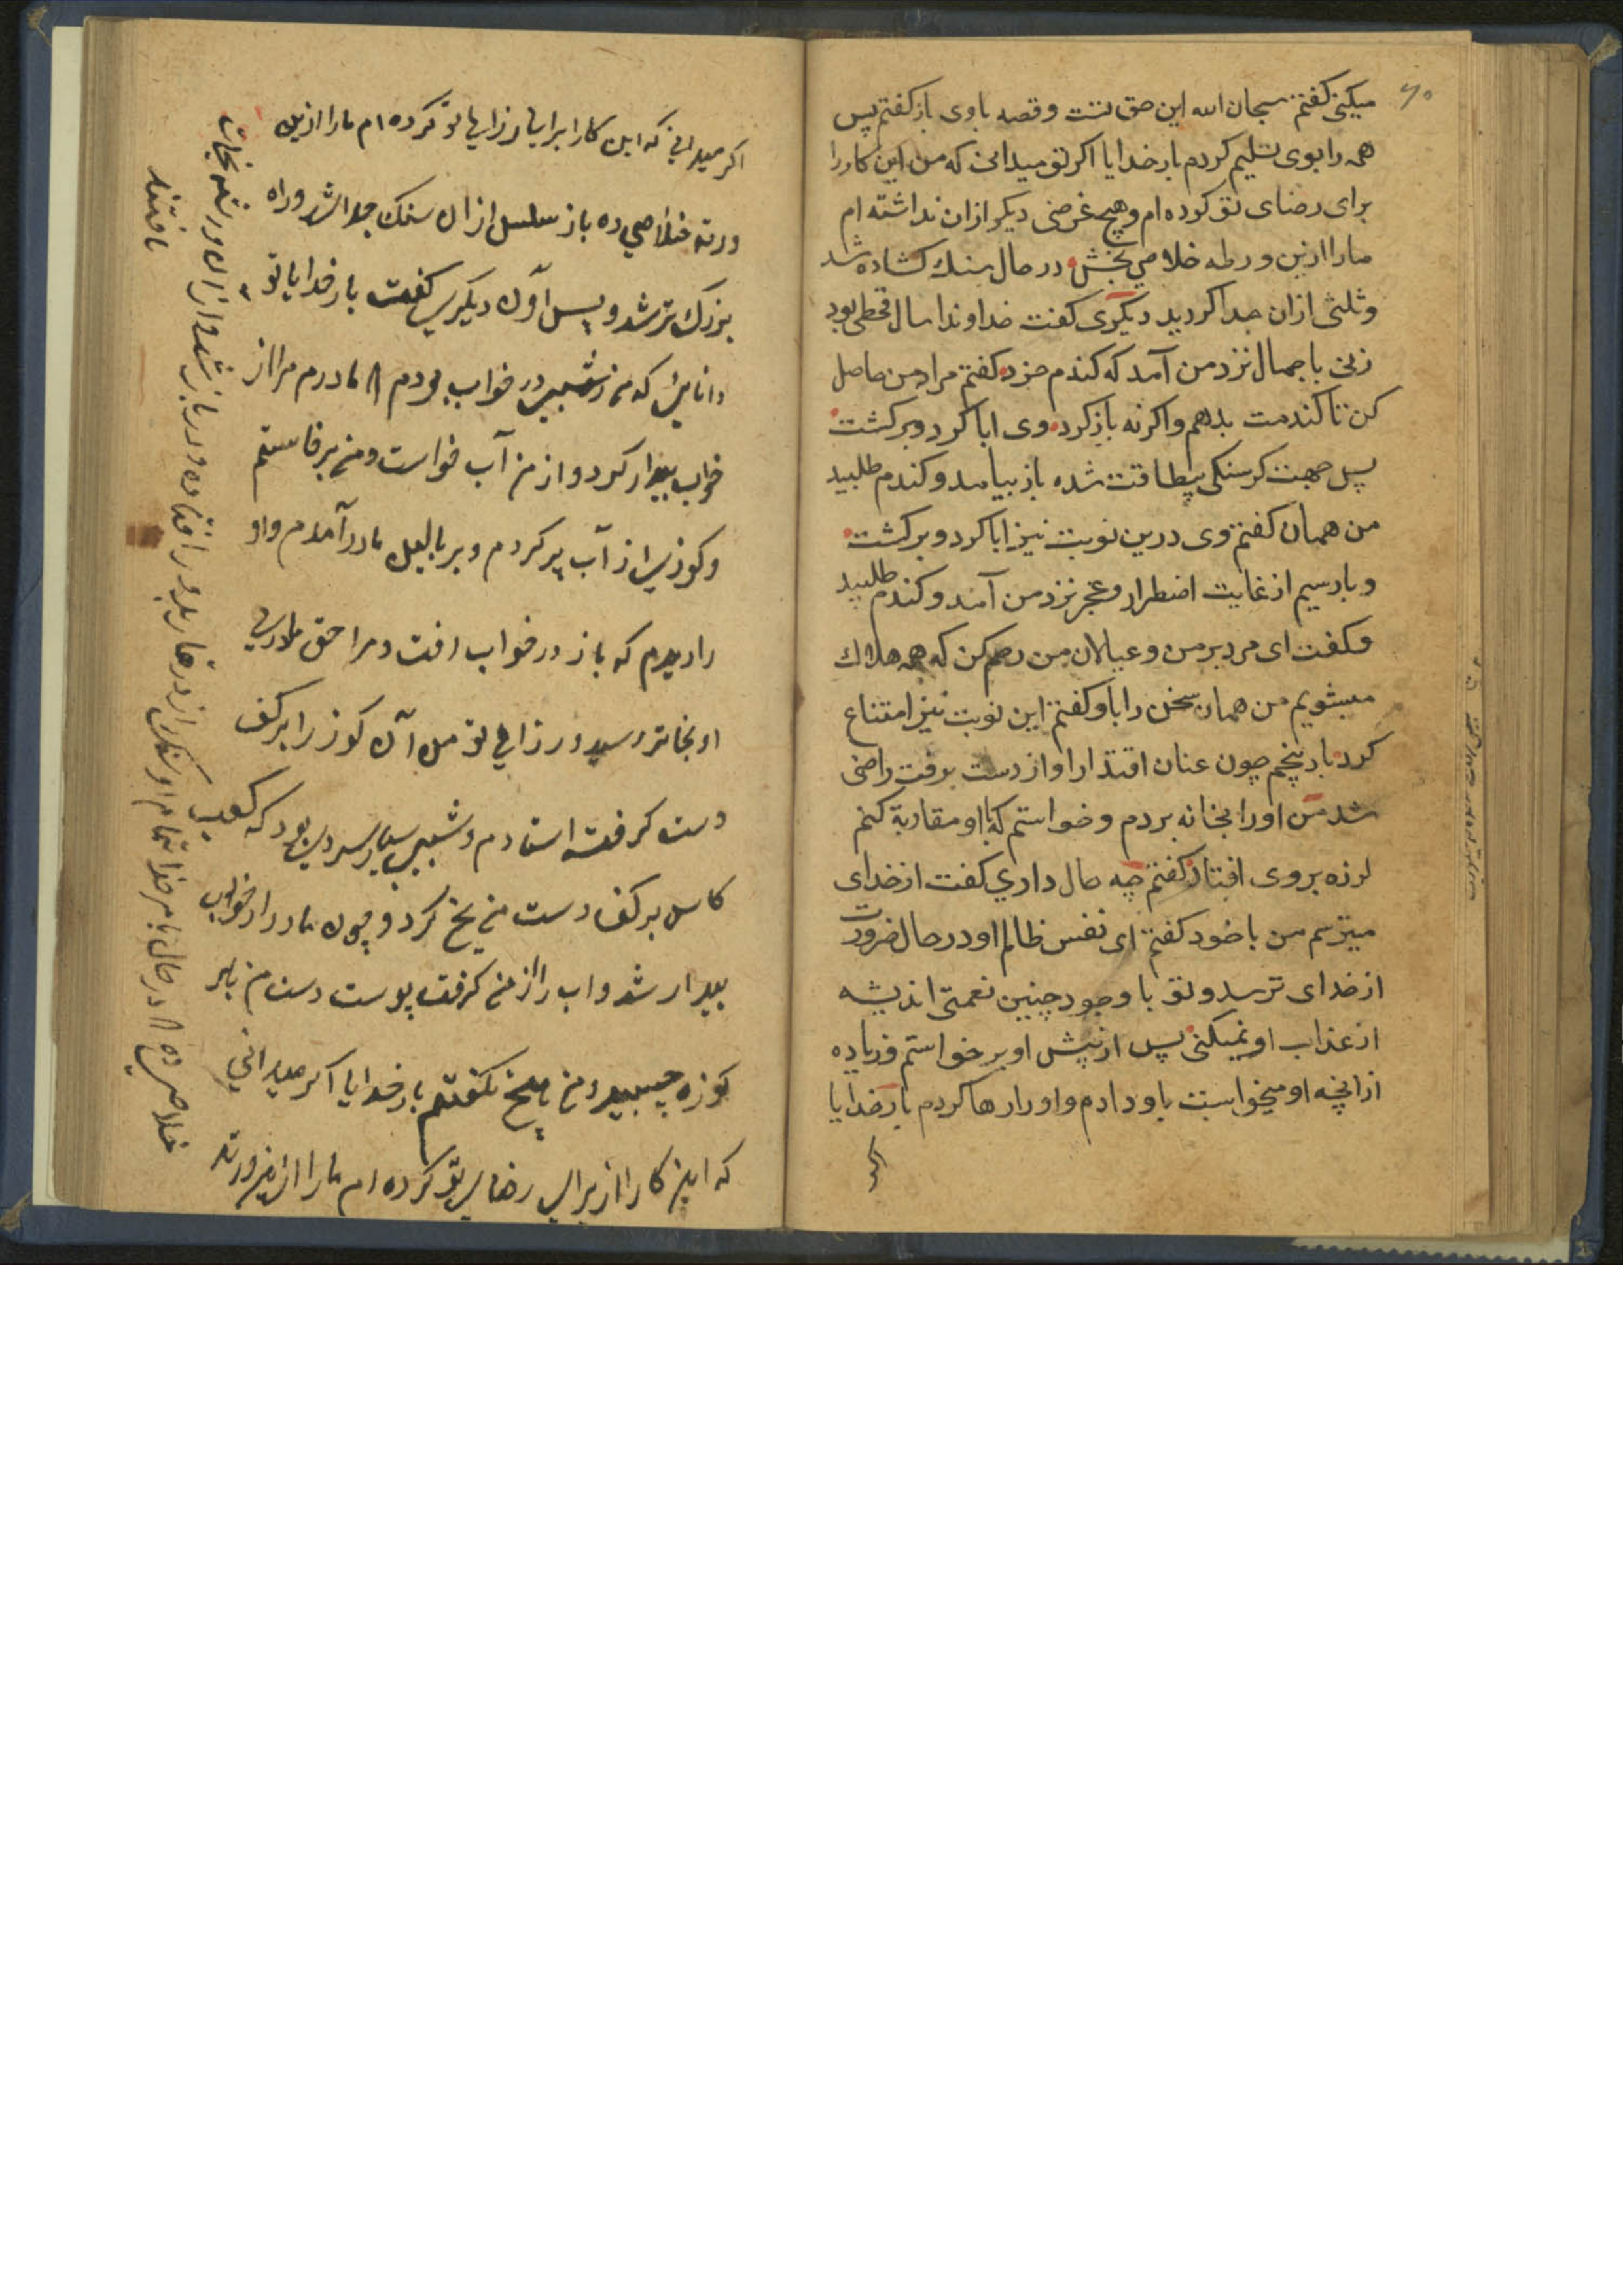 ۷۰
میکنی کفتم سبحان الله این حق تست و قصه باوی باز کفتم پس
همه را بوی تسلیم کردم بار خدایا اکر تو میدانی که من این کار را
برای رضای تو کرده ام و هیچ غرضی دیکر ازان نداشته ام
ما را ازین ورطه خلاصی بخش در حال سنك کشاده شد
و ثلثی ازان جدا کردید دیکری کفت خداوندا سال قحطی بود
زنی با جمال نزد من آمد که کندم خرد کفتم مراد من حاصل
کن تا کندمت بدهم و اکر نه باز کرد وی ابا کرد و برکشت
پس جهت کرسنکی بیطاقت شده باز بیامد و کندم طلبید
من همان کفتم وی درین نوبت نیز ابا کرد و برکشت
و بار سیم از غایت اضطرار و عجز نزد من آمد و کندم طلبید
و کفت ای مرد بر من و عیالان من رحم کن که همه هلاك
میشویم من همان سخن را باو کفتم این نوبت نیز امتناع
کرد بار پنجم چون عنان اقتدار او از دست برفت راضی
شد من او را بخانه بردم و خواستم که با او مقاربة کنم
لرزه بر وی افتاد کفتم چه حال داری کفت از خدای
میترسم من با خود کفتم ای نفس ظالم او در حال ضرورت
از خدای ترسد و تو با وجود چنین نعمتی اندیشه
از عذاب او نمیکنی پس از پیش او برخواستم و زیاده
از انچه او میخواست باو دادم و او را رها کردم بار خدایا
اکر
اکر میدانی که این کار ا برای رزای تو کرده ام ما را ازین
ورته خلاصی ده باز سلسل ازان سنك جدا شد و راه
بزرك تر شد و پس آون دیکری کفت بار خدایا تو
دانایی که من شبی در خواب بودم مادرم مرا از
خواب بیدار کرد و از من آب خواست و من برخاستم
و کوزی از آب پر کردم و بر بالین مادر آمدم و او
را دیدم که باز در خواب رفت و مرا حق مادری
او بخاتر رسید و رزای تو من آن کوز را بر کف
دست کرفته استادم و شبی بسیار سرد بود که کعب
کاس بر کف دست من یخ کرد و چون مادر از خواب
بیدار شد و اب را از من کرفت پوست دست من بر
کوزه چسبید و من هیچ نکفتم بار خدایا اکر میدانی
که این کار از برای رضای تو کرده ام ما را ازین ورته
خلاصی ده در حال بامر خدا تمام او سنك از در غار
یافتند